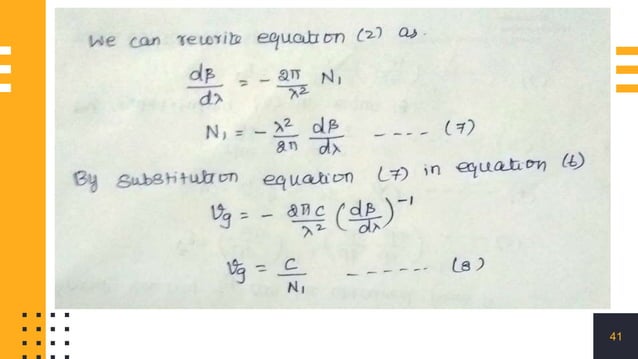 We can rewrite equation (2) as.
dβ/dλ = - 2π/λ² N₁
N₁ = - λ²/2π dβ/dλ ---- (7)
By substitution equation (7) in equation (6)
νg = - 2πc/λ² (dβ/dλ)⁻¹
νg = c/N₁ ------ (8)
41